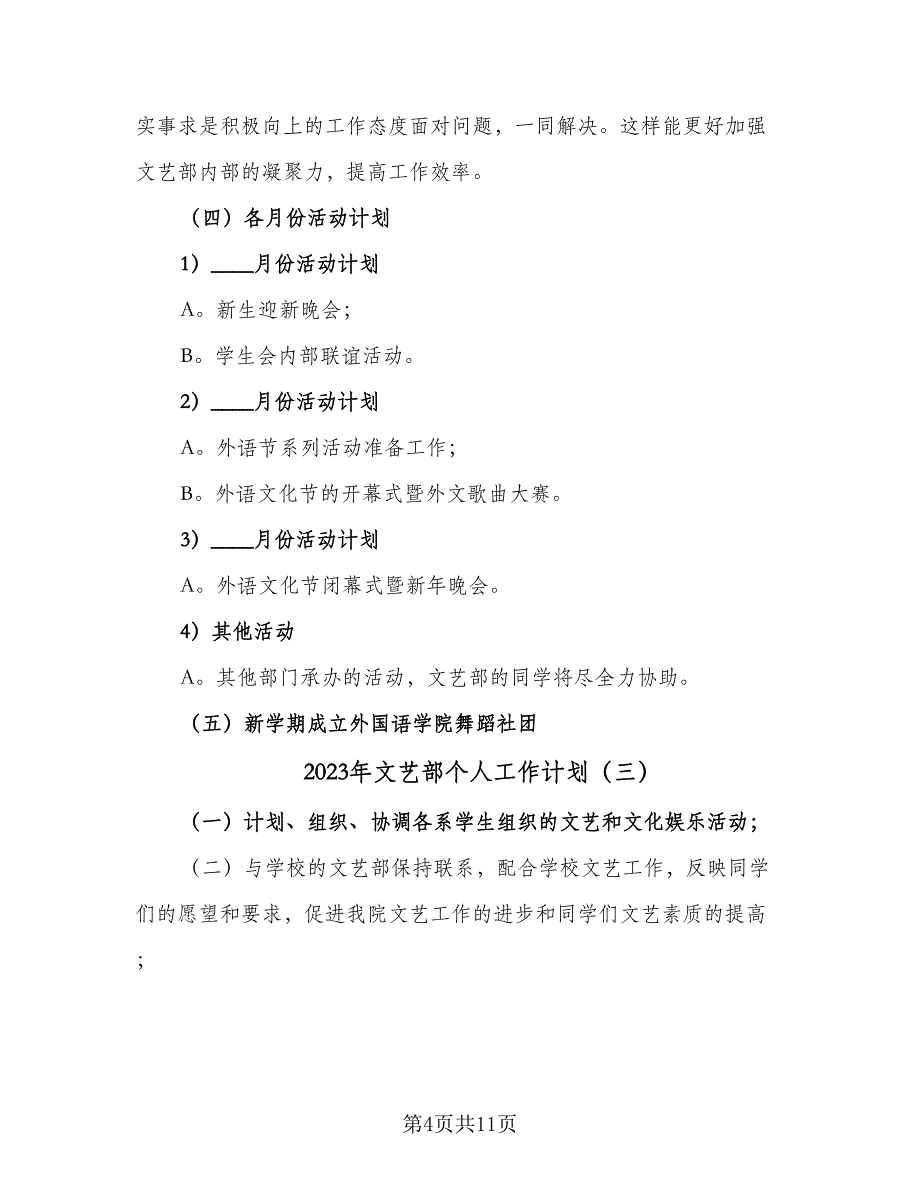 实事求是积极向上的工作态度面对问题，一同解决。这样能更好加强
文艺部内部的凝聚力，提高工作效率。
（四）各月份活动计划
1）____月份活动计划
A。新生迎新晚会；
B。学生会内部联谊活动。
2）____月份活动计划
A。外语节系列活动准备工作；
B。外语文化节的开幕式暨外文歌曲大赛。
3）____月份活动计划
A。外语文化节闭幕式暨新年晚会。
4）其他活动
A。其他部门承办的活动，文艺部的同学将尽全力协助。
（五）新学期成立外国语学院舞蹈社团
2023年文艺部个人工作计划（三）
（一）计划、组织、协调各系学生组织的文艺和文化娱乐活动；
（二）与学校的文艺部保持联系，配合学校文艺工作，反映同学
们的愿望和要求，促进我院文艺工作的进步和同学们文艺素质的提高
；
第4页共11页